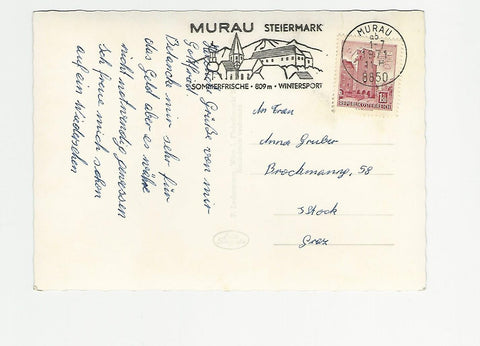 MURAU STEIERMARK
SOMMERFRISCHE · 809m · WINTERSPORT
MURAU
1-7
1971-
8850
Grüße von mir
Gottfried!
Bedanke mir sehr für
das Geld aber es wäre
nicht notwendig gewesen
Ich freue mich schon
auf ein Wiedersehen
An Frau
Anna Gruber
Brockmanng. 58
3 Stock
Graz